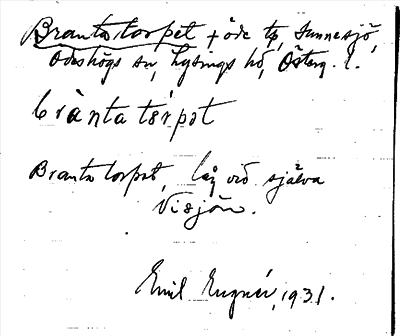 Brantatorpet + öde tp, Sunnesjö,
Ödeshögs sn, Lysings hd, Österg. l.
bràntatórpət
Brantatorpet, låg vid själva
Visjön.
Emil Engnér, 1931.